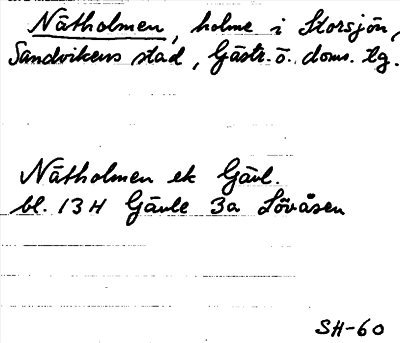 Nätholmen, holme i Storsjön,
Sandvikens stad, Gästr. ö. doms. lg.
Nätholmen ek Gävl.
bl. 13 H Gävle 3a Lövåsen
SH-60